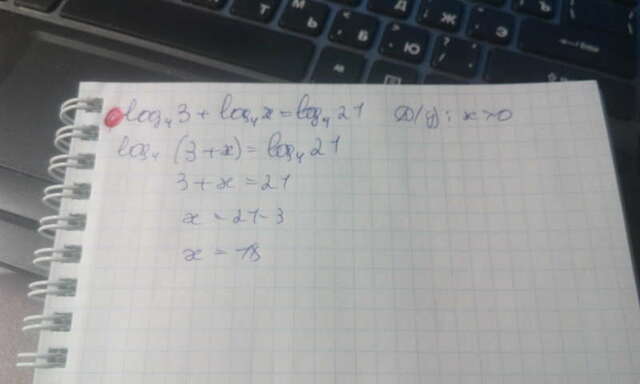 log₄ 3 + log₄ x = log₄ 21 D(y): x > 0
log₄ (3 + x) = log₄ 21
3 + x = 21
x = 21 - 3
x = 18